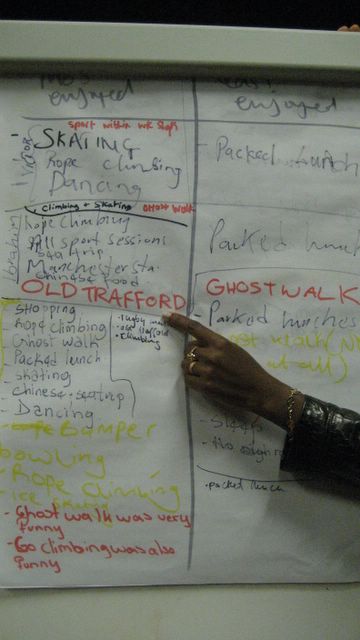 enjoyed
enjoyed
sport within wk shop
- SKATING
Rope climbing
Dancing
Packed lunch
Climbing + skating
Ghost walk
Rope climbing
All sport sessions
Sea trip
Manchester sta.
Chinese food
Ibrahim
Packed lunch
OLD TRAFFORD
GHOST WALK
- Shopping
- Rope climbing
- Ghost walk
- Packed lunch
- Skating
- Chinese
- Dancing
old trafford
climbing
- Packed lunches
at all)
- Sleep
Bamper
bowling
- Rope climbing
- ice
- Ghost walk was very
funny
- Go climbing was also
funny
packed lunch